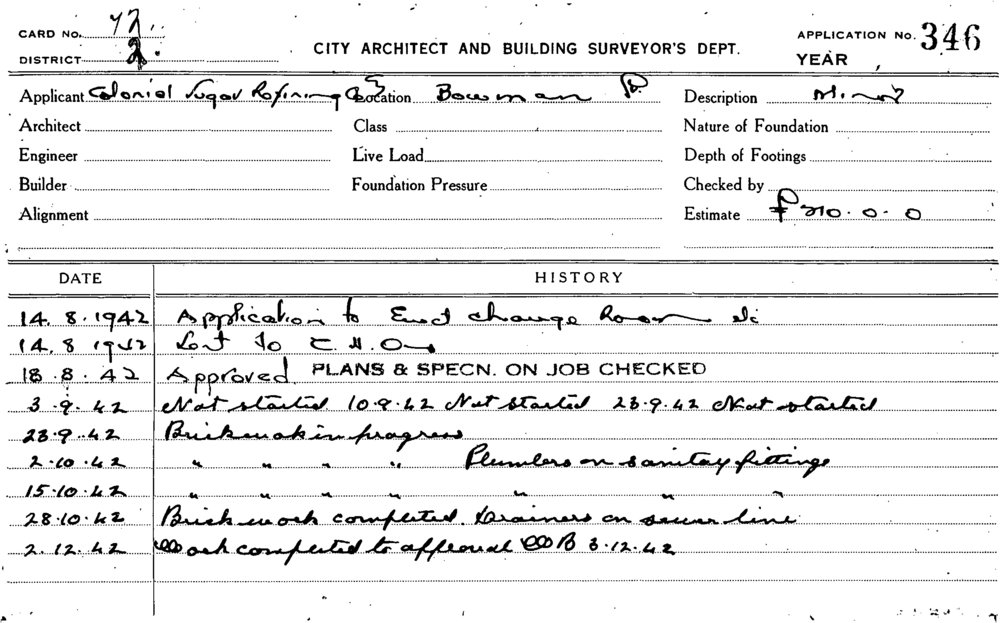 CARD No. 72
DISTRICT 2.
CITY ARCHITECT AND BUILDING SURVEYOR'S DEPT.
APPLICATION No. 346
YEAR
Applicant Colonial Sugar Refining Co Location Bowman St Description Minor
Architect Class Nature of Foundation
Engineer Live Load Depth of Footings
Builder Foundation Pressure Checked by
Alignment Estimate £ 210.0.0
DATE HISTORY
14.8.1942 Application to Erect change Room etc
14.8 1942 to C.H.O
18.8.42 Approved. PLANS & SPECN. ON JOB CHECKED
3.9.42 Not started 10.9.42 Not started 23.9.42 Not started
23.9.42 Brickwork in progress
2.10.42 " " " " Plumbers on sanitary fittings
15.10.42 " " " " " " "
28.10.42 Brickwork completed. Drainers on sewer line
2.12.42 Work completed to approval WB 3.12.42